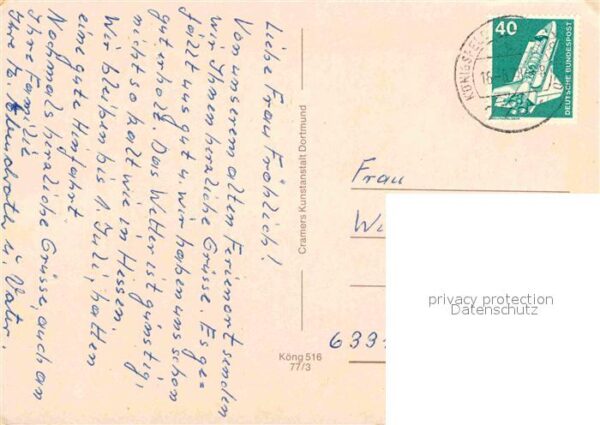 Liebe Frau Fröhlich!
Von unserem alten Ferienort senden
wir Ihnen herzliche Grüsse. Es ge-
fällt uns gut u. wir haben uns schon
gut erholt. Das Wetter ist günstig,
nicht so kalt wie in Hessen.
Wir bleiben bis 1. Juli, hatten
eine gute Hinfahrt.
Nochmals herzliche Grüsse, auch an
Ihre Familie
Ihre u. Vater.
Cramers Kunstanstalt Dortmund
Köng 516
77/3
40
DEUTSCHE BUNDESPOST
Frau
W
633
privacy protection
Datenschutz